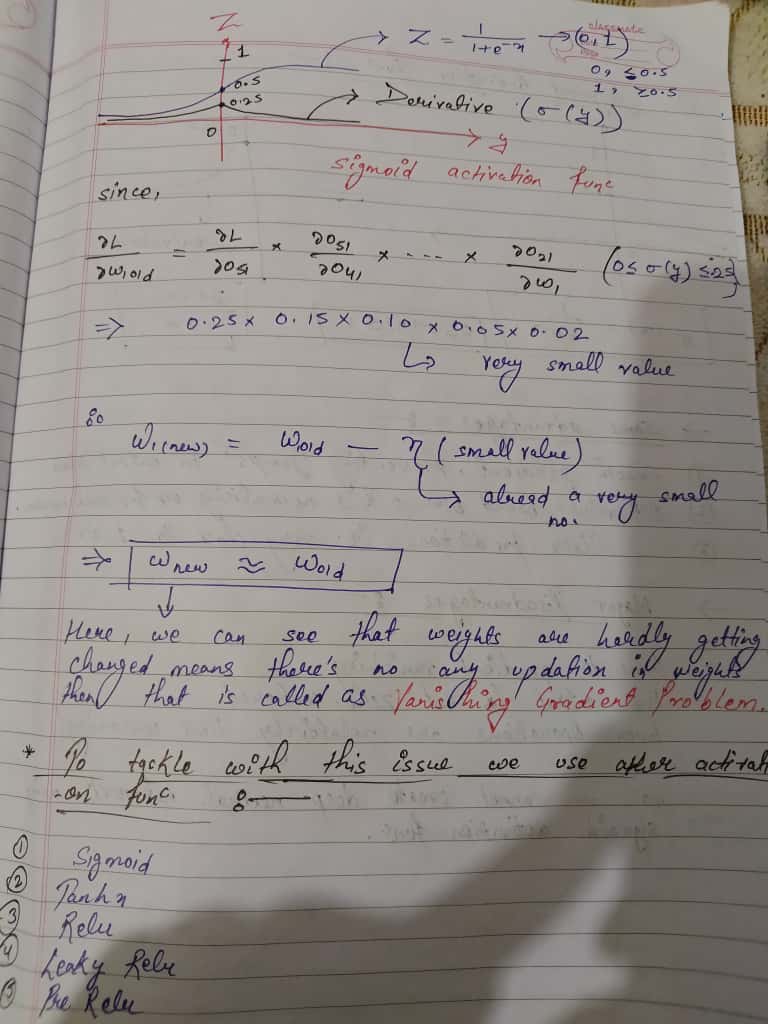 Z
1
Z = 1/(1+e^-x) → (0, 1)
classmate
0, ≤0.5
1, ≥0.5
0.5
0.25
Derivative (σ(y))
0
y
sigmoid activation func
since,
∂L/∂w1old = ∂L/∂O51 × ∂O51/∂O41 × --- × ∂O21/∂w1 (0 ≤ σ(y) ≤ .25)
⇒ 0.25 × 0.15 × 0.10 × 0.05 × 0.02
↳ very small value
W1(new) = Wold — η (small value)
↳ alread a very small
no.
⇒ Wnew ≈ Wold
Here, we can see that weights are hardly getting
changed means there's no any updation in weights
then that is called as Vanishing Gradient Problem.
* To tackle with this issue we use activati
-on func. :—
① Sigmoid
② Tanh x
③ Relu
④ Leaky Relu
⑤ Pre Relu